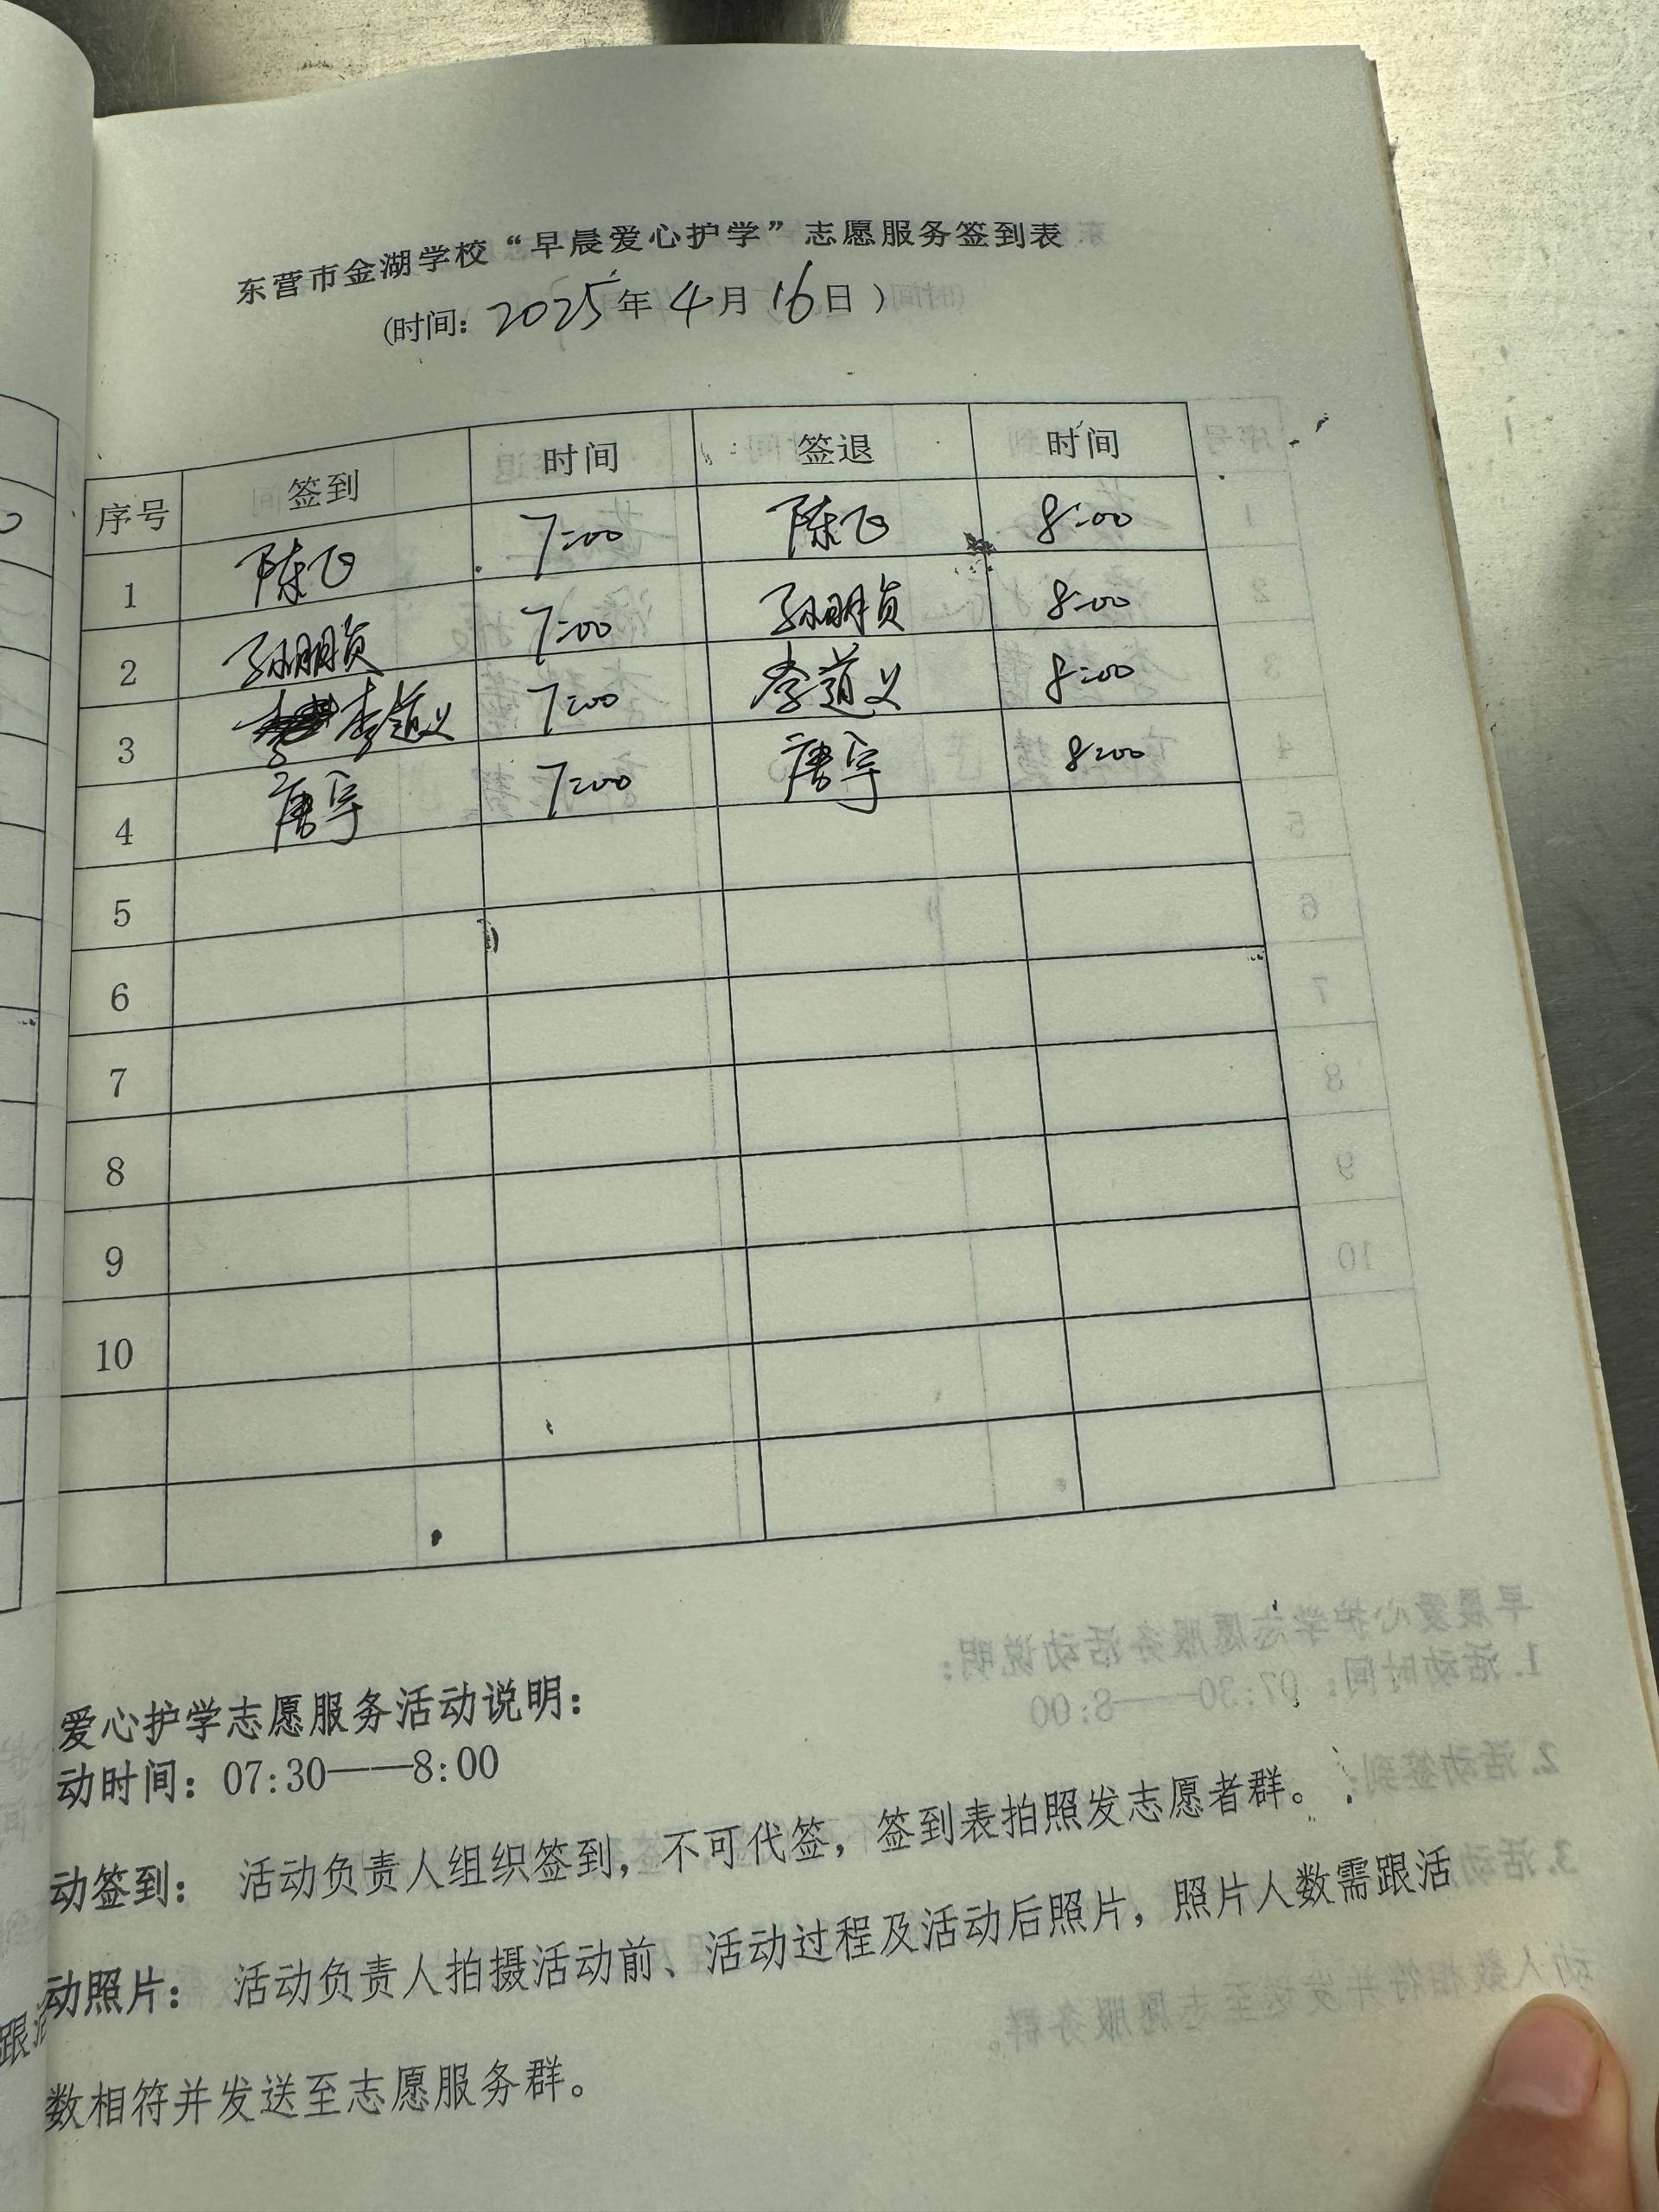 东营市金湖学校“早晨爱心护学”志愿服务签到表
(时间：2025年4月16日)
序号 签到 时间 签退 时间
1 陈飞 7:00 陈飞 8:00
2 孙明贞 7:00 孙明贞 8:00
3 李道义 7:00 李道义 8:00
4 唐宇 7:00 唐宇 8:00
5
6
7
8
9
10
爱心护学志愿服务活动说明：
动时间：07:30——8:00
动签到： 活动负责人组织签到，不可代签，签到表拍照发志愿者群。
动照片： 活动负责人拍摄活动前、活动过程及活动后照片，照片人数需跟活
数相符并发送至志愿服务群。